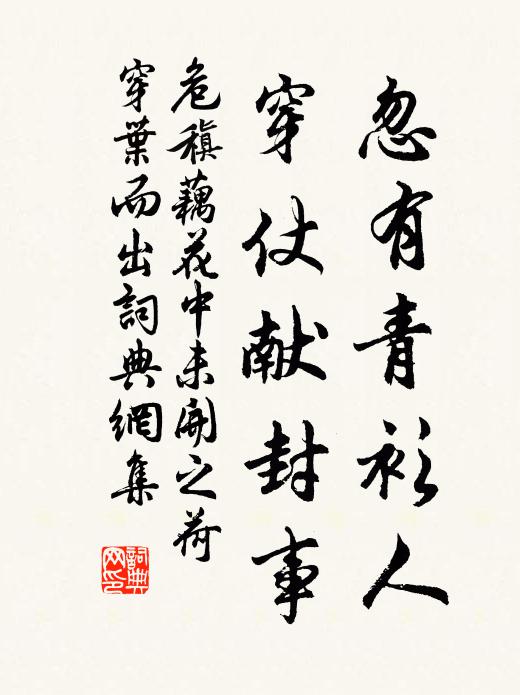 忽有青衫人
穿仗献封事
危稹藕花中未開之荷
穿葉而出詞典網集
詞典
网印